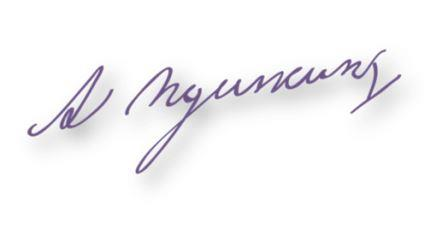 А Пушкинъ